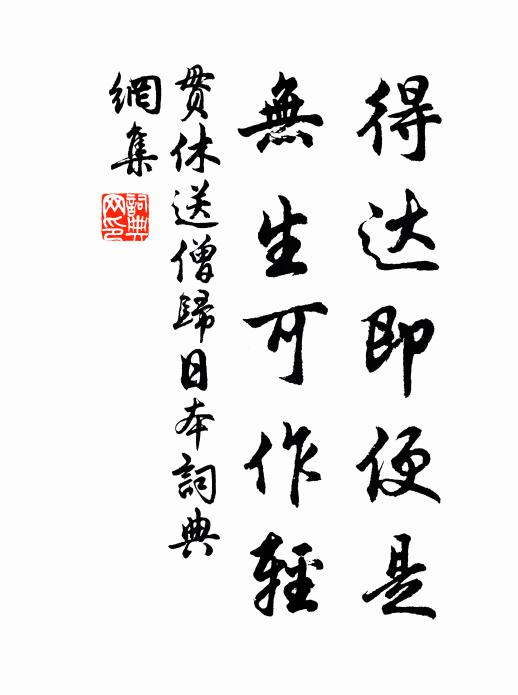 得达即便是
無生可作輕
贯休送僧歸日本詞典
網集
詞典網印